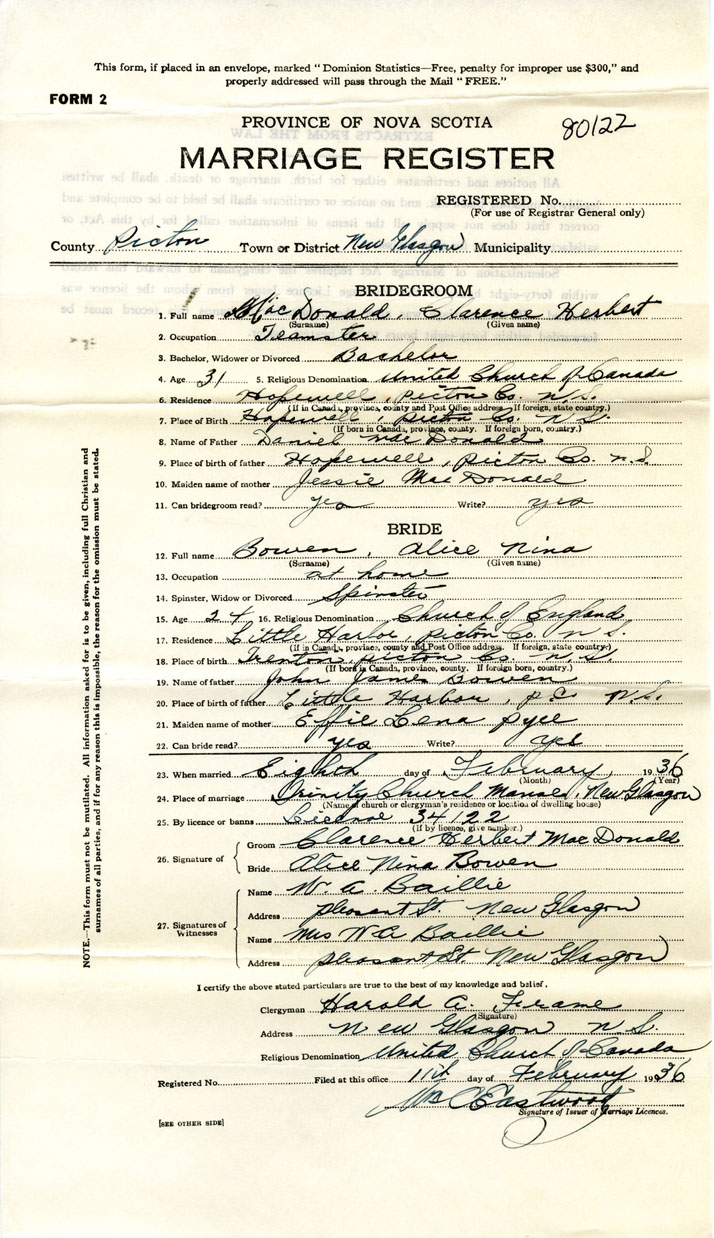 This form, if placed in an envelope, marked "Dominion Statistics—Free, penalty for improper use $300," and
properly addressed will pass through the Mail "FREE."
FORM 2
PROVINCE OF NOVA SCOTIA
80122
MARRIAGE REGISTER
REGISTERED No.
(For use of Registrar General only)
County Pictou Town or District New Glasgow Municipality
BRIDEGROOM
1. Full name MacDonald, Clarence Herbert
(Surname) (Given name)
2. Occupation Teamster
3. Bachelor, Widower or Divorced Bachelor
4. Age 31 5. Religious Denomination United Church of Canada
6. Residence Hopewell, Pictou Co. N.S.
(If in Canada, province, county and Post Office address. If foreign, state country.)
7. Place of Birth Hopewell, Pictou Co. N.S.
(If born in Canada, province, county. If foreign born, country.)
8. Name of Father Daniel MacDonald
9. Place of birth of father Hopewell, Pictou Co. N.S.
10. Maiden name of mother Jessie MacDonald
11. Can bridegroom read? yes Write? yes
BRIDE
12. Full name Bowen, Alice Nina
(Surname) (Given name)
13. Occupation at home
14. Spinster, Widow or Divorced Spinster
15. Age 24 16. Religious Denomination Church of England
17. Residence Little Harbor, Pictou Co. N.S.
(If in Canada, province, county and Post Office address. If foreign, state country)
18. Place of birth Trenton, Pictou Co. N.S.
(If born in Canada, province, county. If foreign born, country.)
19. Name of father John James Bowen
20. Place of birth of father Little Harbour, P.C. N.S.
21. Maiden name of mother Effie Lena Pyee
22. Can bride read? yes Write? yes
23. When married Eighth day of February, 1936
(Month) (Year)
24. Place of marriage Trinity Church Manse, New Glasgow
(Name of church or clergyman's residence or location of dwelling house)
25. By licence or banns License 34122
(If by licence, give number.)
26. Signature of
Groom Clarence Herbert MacDonald
Bride Alice Nina Bowen
27. Signatures of Witnesses
Name W. A. Baillie
Address Pleasant St. New Glasgow
Name Mrs W A Baillie
Address Pleasant St. New Glasgow
I certify the above stated particulars are true to the best of my knowledge and belief.
Clergyman Harold A. Frame
(Signature)
Address New Glasgow N.S.
Religious Denomination United Church of Canada
Registered No. Filed at this office 11th day of February 1936
Eastwood
Signature of Issuer of Marriage Licences.
[SEE OTHER SIDE]
NOTE.—This form must not be mutilated. All information asked for is to be given, including full Christian and
surnames of all parties, and if for any reason this is impossible, the reason for the omission must be stated.